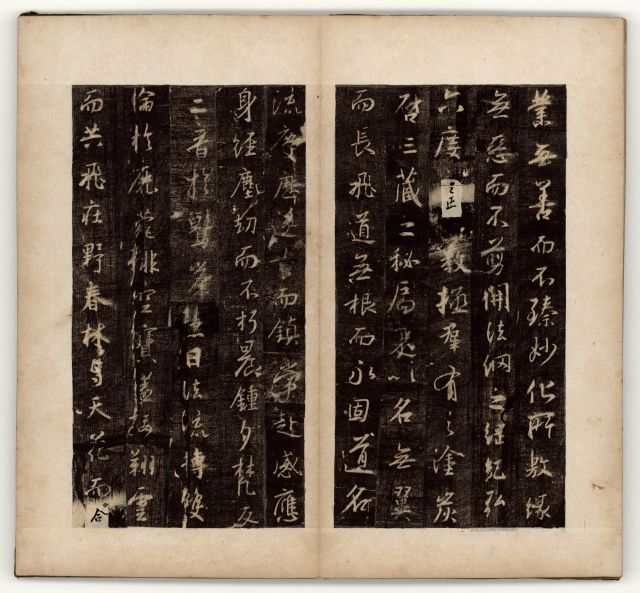 業無善而不臻妙化所敷緣
無惡而不剪開法網之綱紀弘
六度之正教拯群有之塗炭
啓三藏之秘扃是以名無翼
而長飛道無根而永固道名
流慶歷遂古而鎮常赴感應
身經塵劫而不朽晨鍾夕梵交
二音於鷲峯慧日法流轉雙
輪於鹿菀排空寶蓋接翔雲
而共飛莊野春林與天花而合